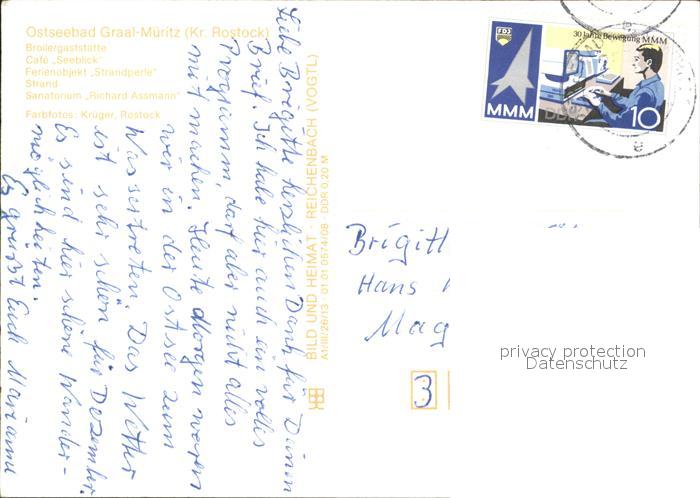 Ostseebad Graal-Müritz (Kr. Rostock)
Broilergaststätte
Café „Seeblick"
Ferienobjekt „Strandperle"
Strand
Sanatorium „Richard Assmann"
Farbfotos: Krüger, Rostock
Liebe Brigitte herzlichen Dank für Deinen
Brief. Ich habe hier auch ein volles
Programm, darf aber nicht alles
mit machen. Heute Morgen waren
wir in der Ostsee zum
Wassertreten. Das Wetter
ist sehr schön für Dezember.
Es sind hier schöne Wander-
möglichkeiten.
Es grüßt Euch Marianne
BILD UND HEIMAT · REICHENBACH (VOGTL)
A1/III/26/13 · 01 01 0574/08 · DDR 0,20 M
FDJ
30 Jahre Bewegung MMM
MMM
DDR
10
Brigitt
Hans
Mag
3
privacy protection
Datenschutz